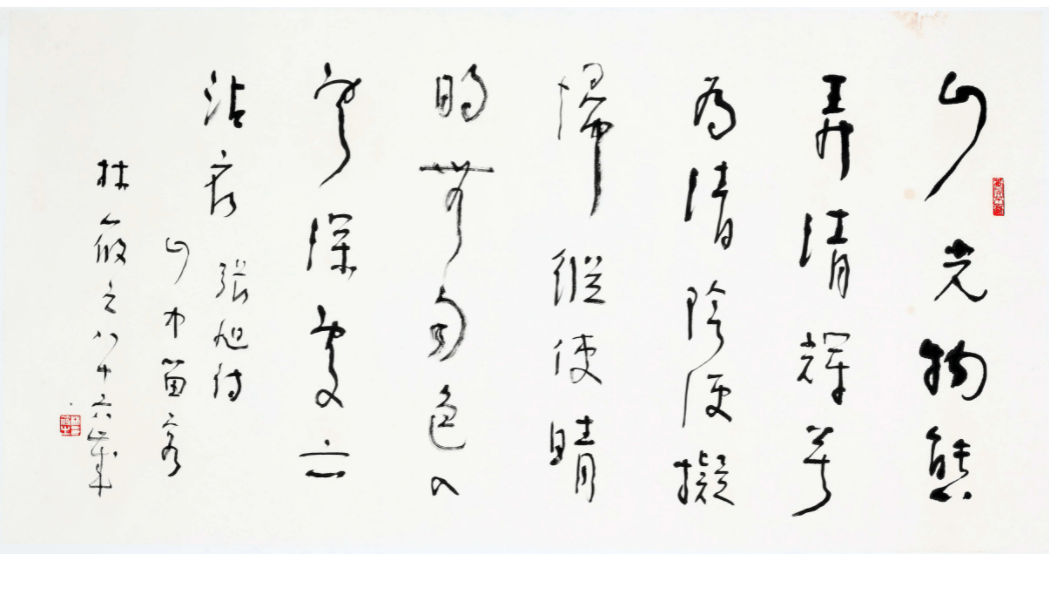 山光物態
弄清輝莫
為清陰便擬
歸縱使晴
明無雨色入
雲深處亦
沾衣 張旭詩
山中留客
林筱之八十六歲